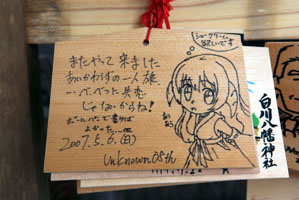 また やって 来ました
あいかわらずの一人旅
…べ、べつに 共恋
じゃないからね!
ボールペンで書けば
よかった…
2007.5.6.(日)
Unknown28th
シュークリーム
欲しいです
白川八幡神社